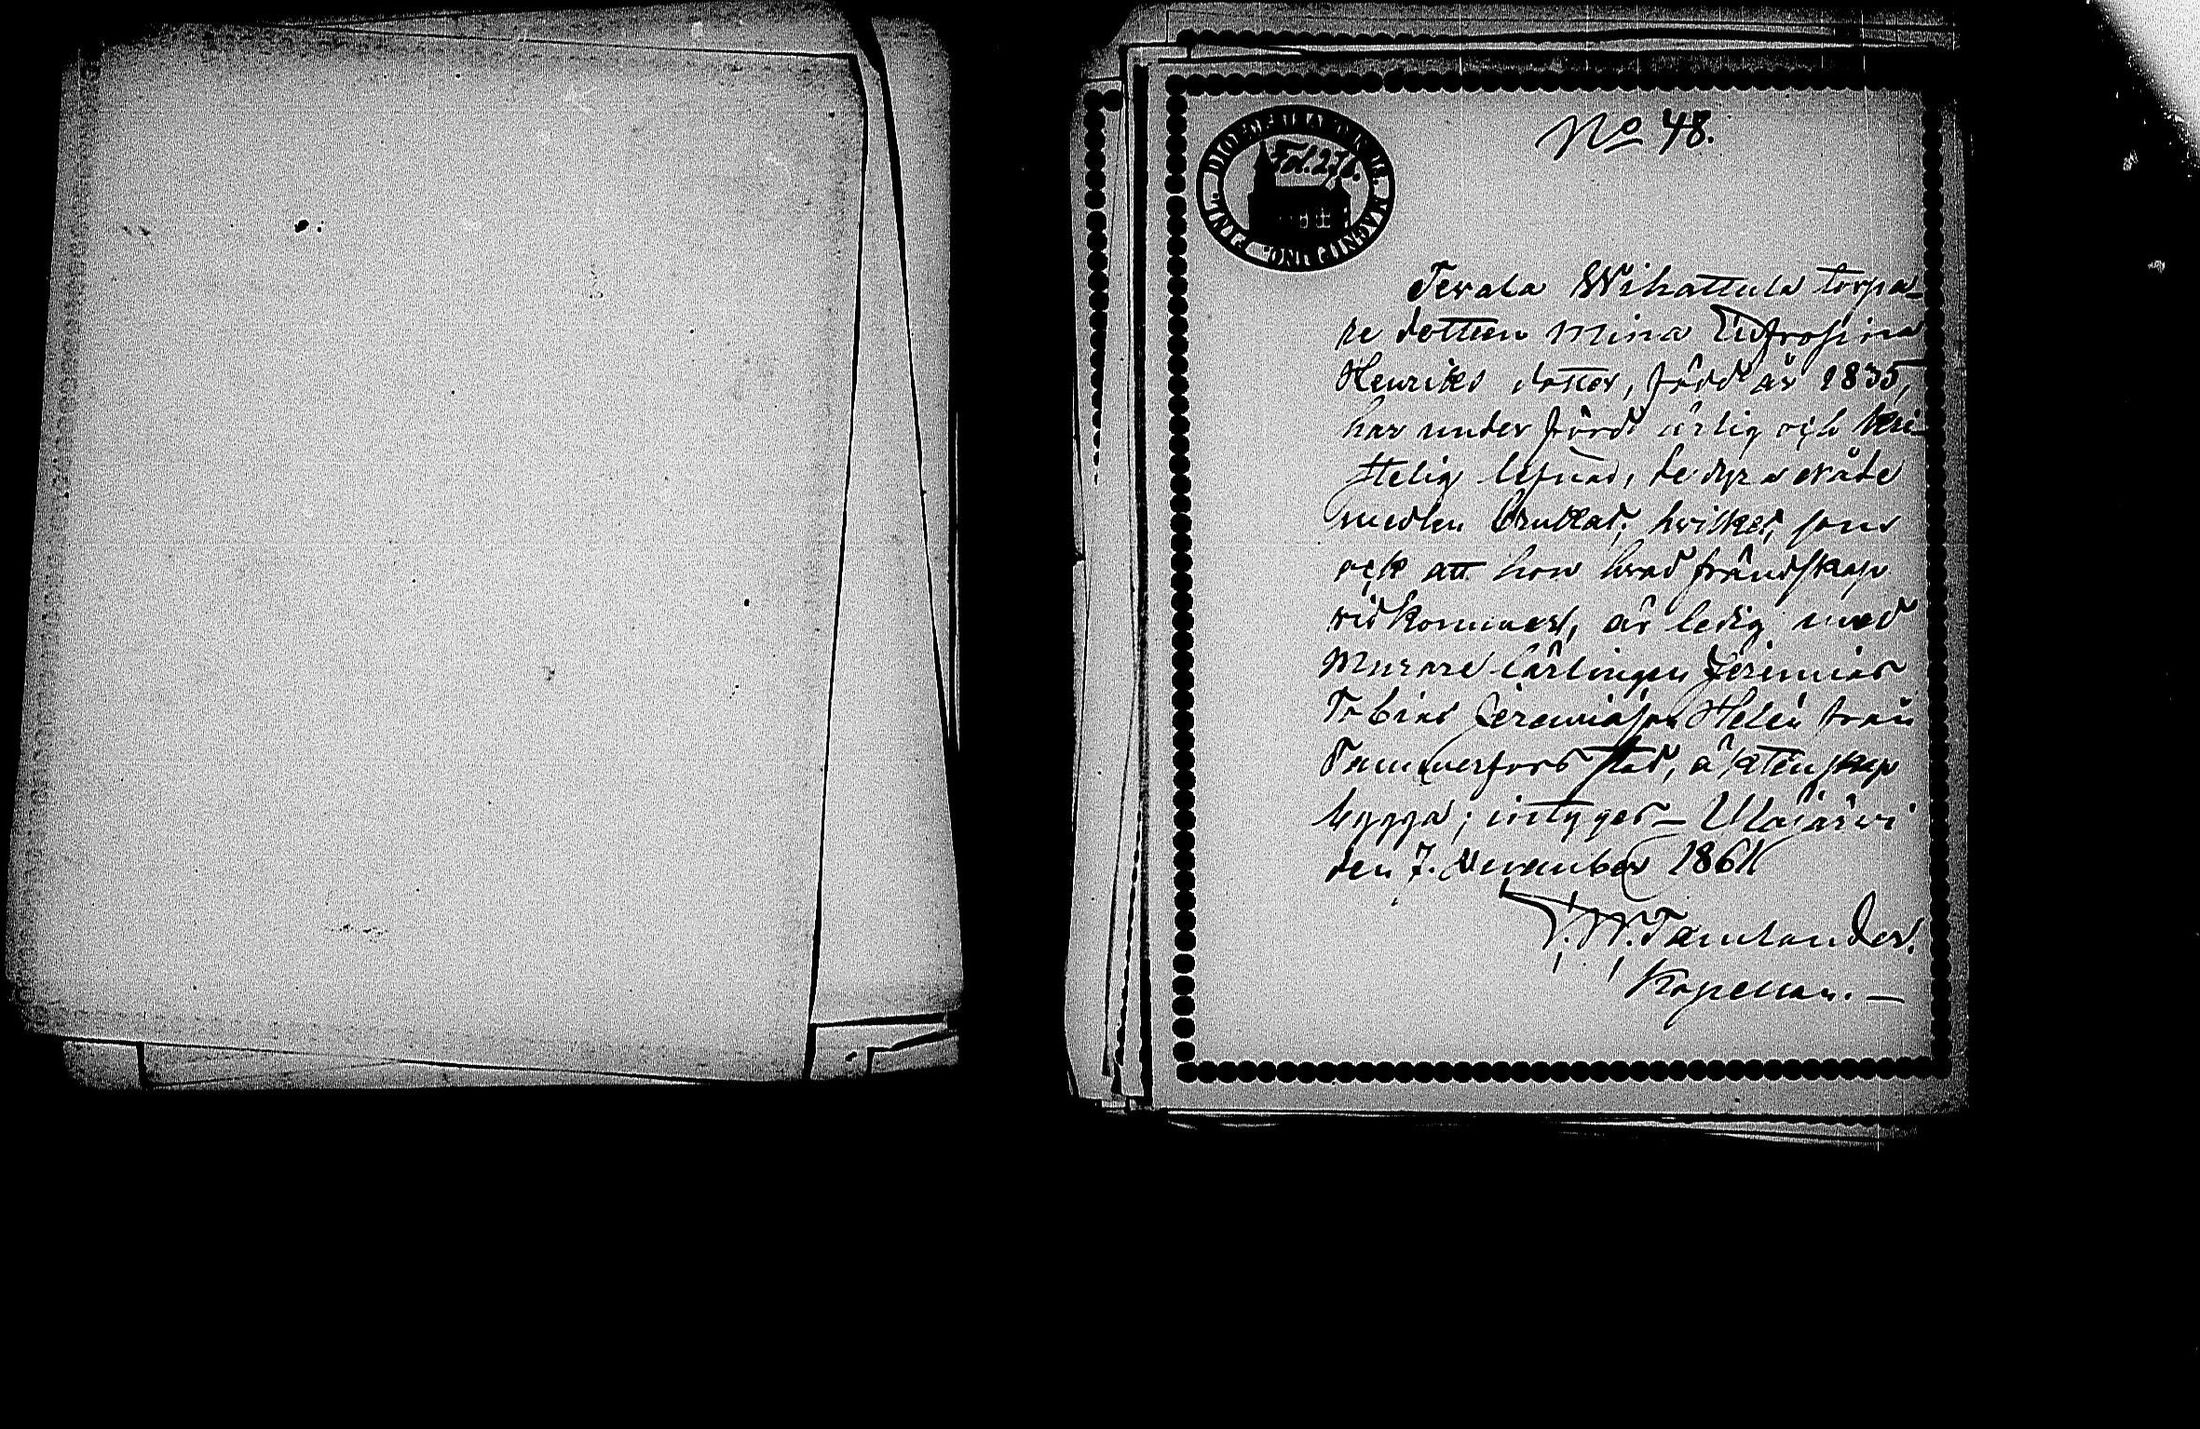 No 48.
Fol. 276.
Terala Wihattula torpa-
re dottren Mina Eufrosina
Henriks dotter, född år 1835,
har under förd ärlig och kri-
stelig lefnad, de dyra nåde
medlen brukat; hvilket, som
ock att hon hvad frändskap
vidkommer, är ledig med
Murare lärlingen Jeremias
Tobias Jeremiasson Helén från
Tammerfors stad, äktenskap
bygga; intygar_ Ylöjärvi
den 7. November 1861
Kapellan. _